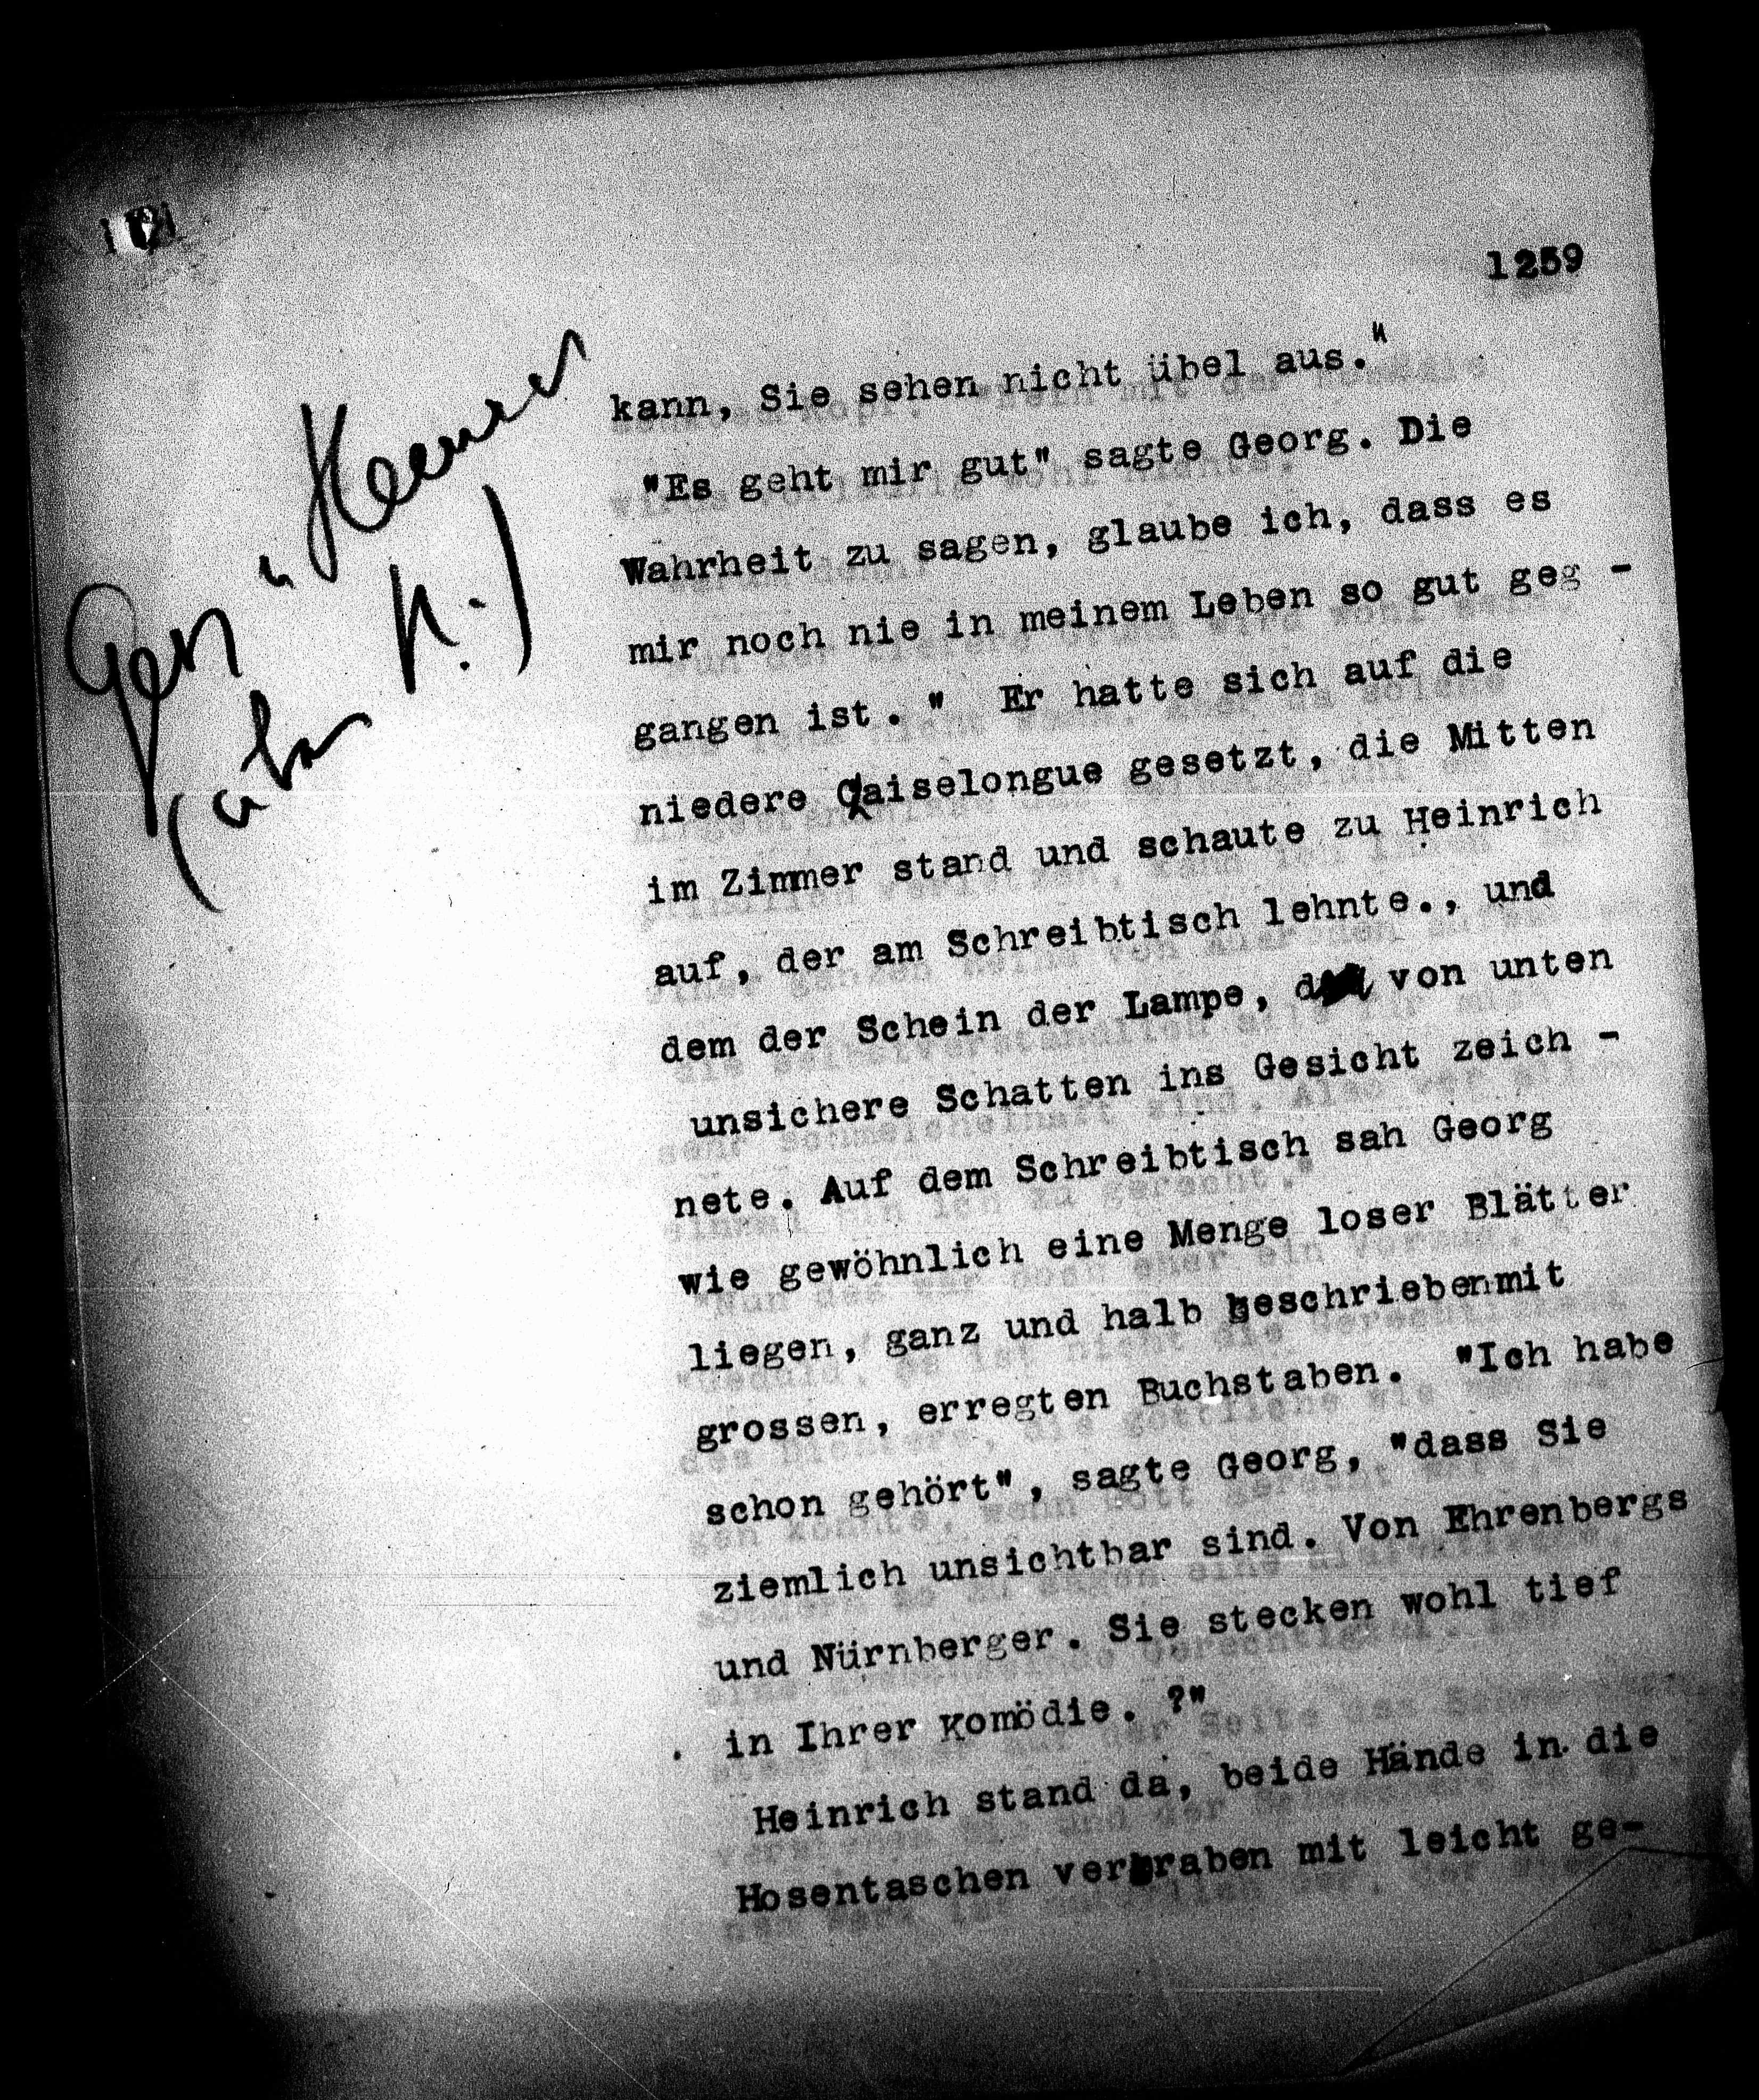 1259
kann, Sie sehen nicht übel aus."
"Es geht mir gut" sagte Georg. Die
Wahrheit zu sagen, glaube ich, dass es
mir noch nie in meinem Leben so gut geg -
gangen ist. " Er hatte sich auf die
niedere Caiselongue gesetzt, die Mitten
im Zimmer stand und schaute zu Heinrich
auf, der am Schreibtisch lehnte., und
dem der Schein der Lampe, von unten
unsichere Schatten ins Gesicht zeich -
nete. Auf dem Schreibtisch sah Georg
wie gewöhnlich eine Menge loser Blätter
liegen, ganz und halb beschriebenmit
grossen, erregten Buchstaben. "Ich habe
schon gehört", sagte Georg, "dass Sie
ziemlich unsichtbar sind. Von Ehrenbergs
und Nürnberger. Sie stecken wohl tief
in Ihrer Komödie. ?"
Heinrich stand da, beide Hände in die
Hosentaschen vergraben mit leicht ge-